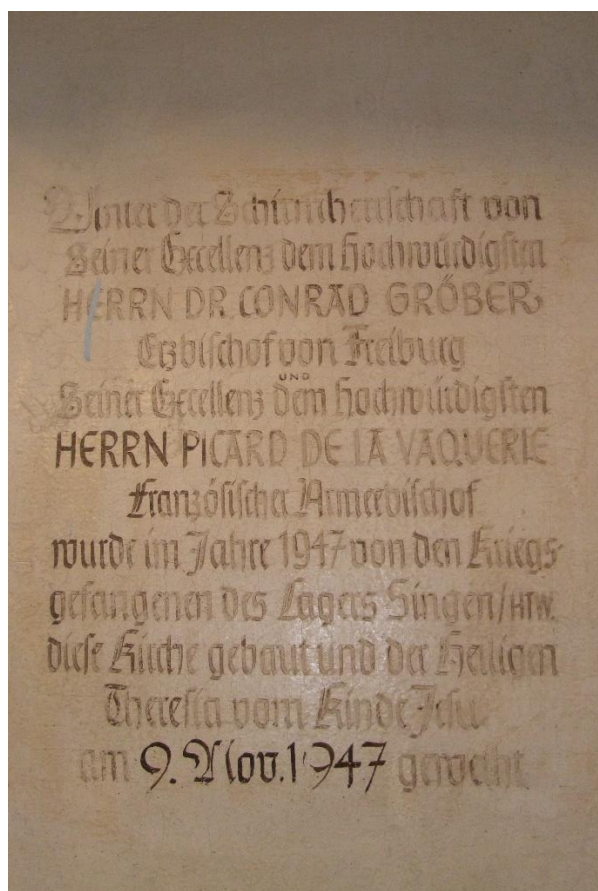 Unter der Schirmherrschaft von
Seiner Excellenz dem hochwürdigsten
HERRN DR. CONRAD GRÖBER
Erzbischof von Freiburg
UND
Seiner Excellenz dem hochwürdigsten
HERRN PICARD DE LA VAQUERIE
Französischer Armeebischof
wurde im Jahre 1947 von den Kriegs-
gefangenen des Lagers Singen/HTW.
diese Kirche gebaut und der Heiligen
Theresia vom Kinde Jesu
am 9. Nov. 1947 geweiht